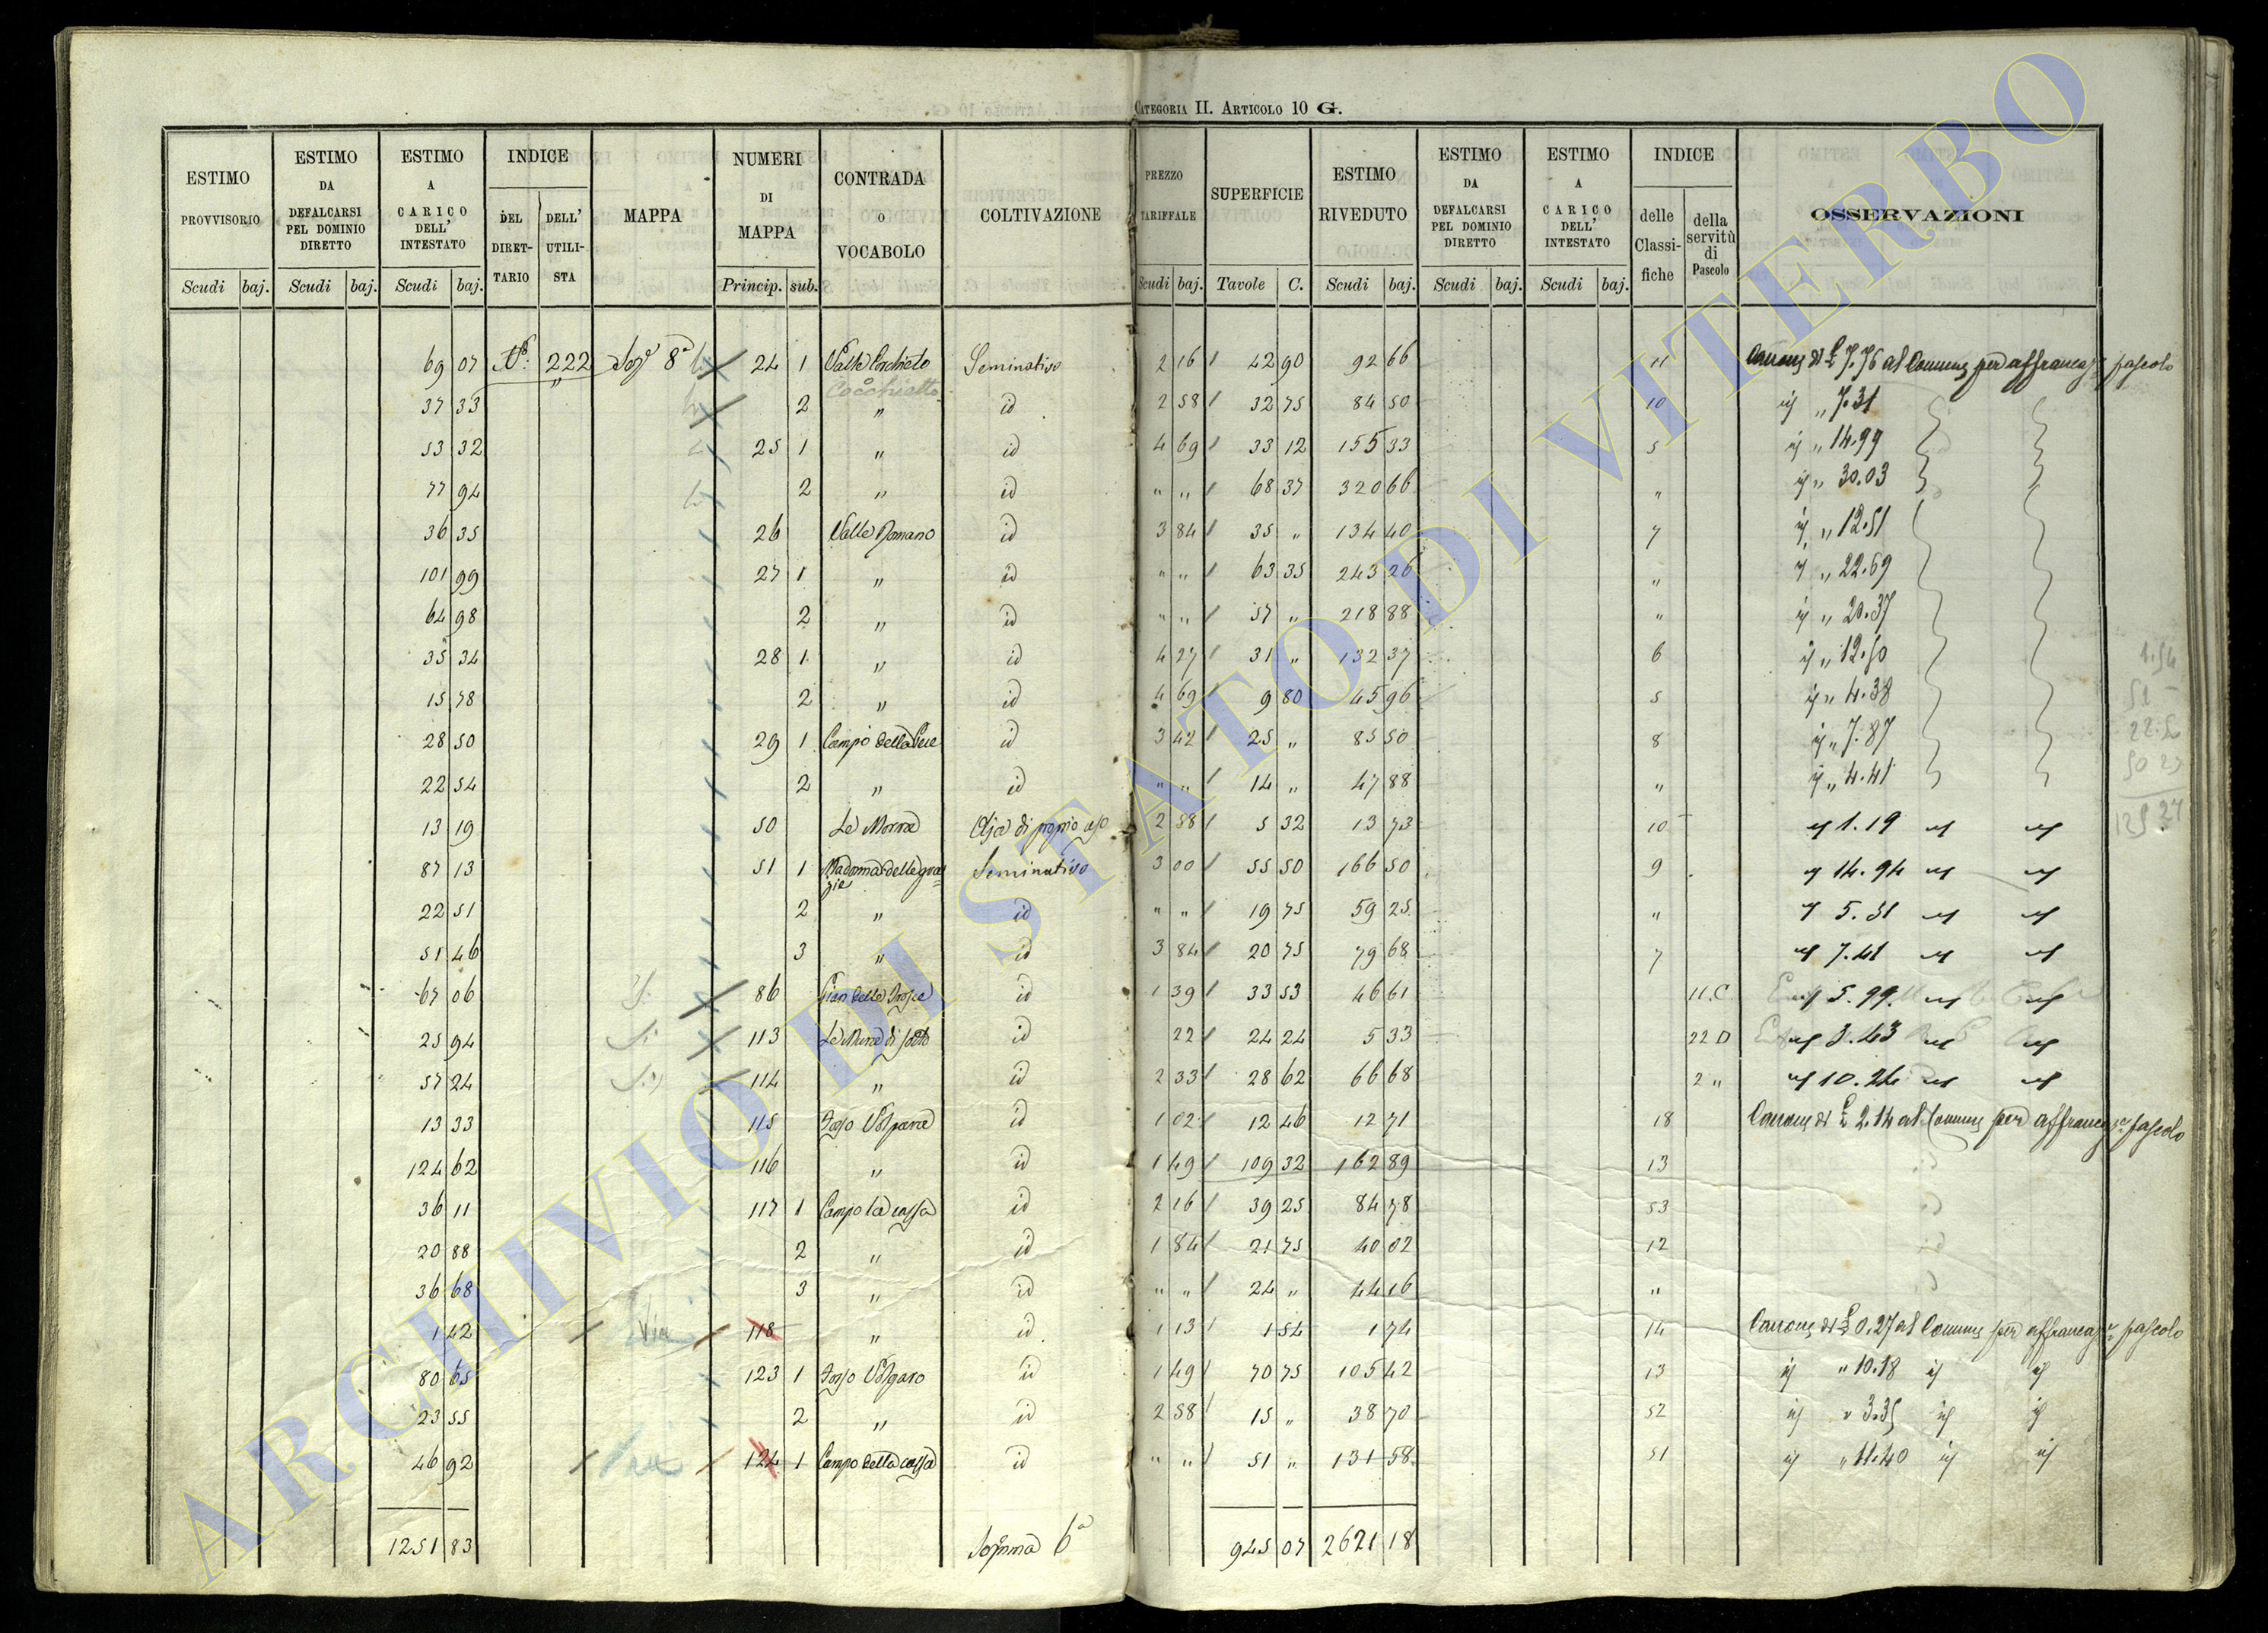 CATEGORIA II. ARTICOLO 10 G.
ESTIMO PROVVISORIO Scudi baj.
ESTIMO DA DEFALCARSI PEL DOMINIO DIRETTO Scudi baj.
ESTIMO A CARICO DELL' INTESTATO Scudi baj.
INDICE DEL DIRETTARIO DELL' UTILISTA
MAPPA
NUMERI DI MAPPA Princip. sub.
CONTRADA O VOCABOLO
COLTIVAZIONE
PREZZO TARIFFALE Scudi baj.
SUPERFICIE Tavole C.
ESTIMO RIVEDUTO Scudi baj.
ESTIMO DA DEFALCARSI PEL DOMINIO DIRETTO Scudi baj.
ESTIMO A CARICO DELL' INTESTATO Scudi baj.
INDICE delle Classifiche della servitù di Pascolo
OSSERVAZIONI
69 07 222 8ª 24 1 Valle Cocchieto Seminativo 2 16 42 90 92 66 11 Canone di £ 7.76 al Comune per affrancaz pascolo
Cocchietto
37 33 2 " id 2 58 32 75 84 50 10 id " 7.31
53 32 25 1 " id 4 69 33 12 155 33 5 id " 14.99
77 94 2 " id " " 68 37 320 66 " id " 30.03
36 35 26 Valle Romano id 3 84 35 " 134 40 7 id " 12.51
101 99 27 1 " id " " 63 35 243 26 " id " 22.69
64 98 2 " id " " 57 " 218 88 " id " 20.37
35 34 28 1 " id 4 27 31 " 132 37 6 id " 12.50
15 78 2 " id 4 69 9 80 45 96 5 id " 4.38
28 50 29 1 Campo della id 3 42 25 " 85 50 8 id " 7.87
22 54 2 " id " " 14 " 47 88 " id " 4.41
13 19 50 Le Morre Aja di proprio uso 2 58 5 32 13 73 10 id 1.19 id id
87 13 51 1 Madonna delle grazie Seminativo 3 00 55 50 166 50 9 id 14.94 id id
22 51 2 " id " " 19 75 59 25 " id 5.31 id id
51 46 3 " id 3 84 20 75 79 68 7 id 7.41 id id
67 06 86 Pian delle id 1 39 33 53 46 61 11.C id 5.99 id id
25 94 113 Le Murre di sotto id 22 24 24 5 33 22 D id 3.43 id id
57 24 114 " id 2 33 28 62 66 68 2 " id 10.24 id id
13 33 115 Fosso Volpara id 1 02 12 46 12 71 18 Canone di £ 2.14 al Comune per affrancaz pascolo
124 62 116 " id 1 49 109 32 162 89 13 id
36 11 117 1 Campo la cassa id 2 16 39 25 84 78 53 id
20 88 2 " id 1 84 21 75 40 02 12 id
36 68 3 " id " " 24 " 44 16 " id
1 42 Via 118 " id 1 13 1 54 1 74 14 Canone di £ 0.27 al Comune per affrancaz pascolo
80 65 123 1 Fosso Volparo id 1 49 70 75 105 42 13 id " 10.18 id id
23 55 2 " id 2 58 15 " 38 70 52 id " 3.35 id id
46 92 124 1 Campo della cassa id " " 51 " 131 58 51 id " 11.40 id id
1251 83 Somma 6ª 945 07 2621 18
ARCHIVIO DI STATO DI VITERBO